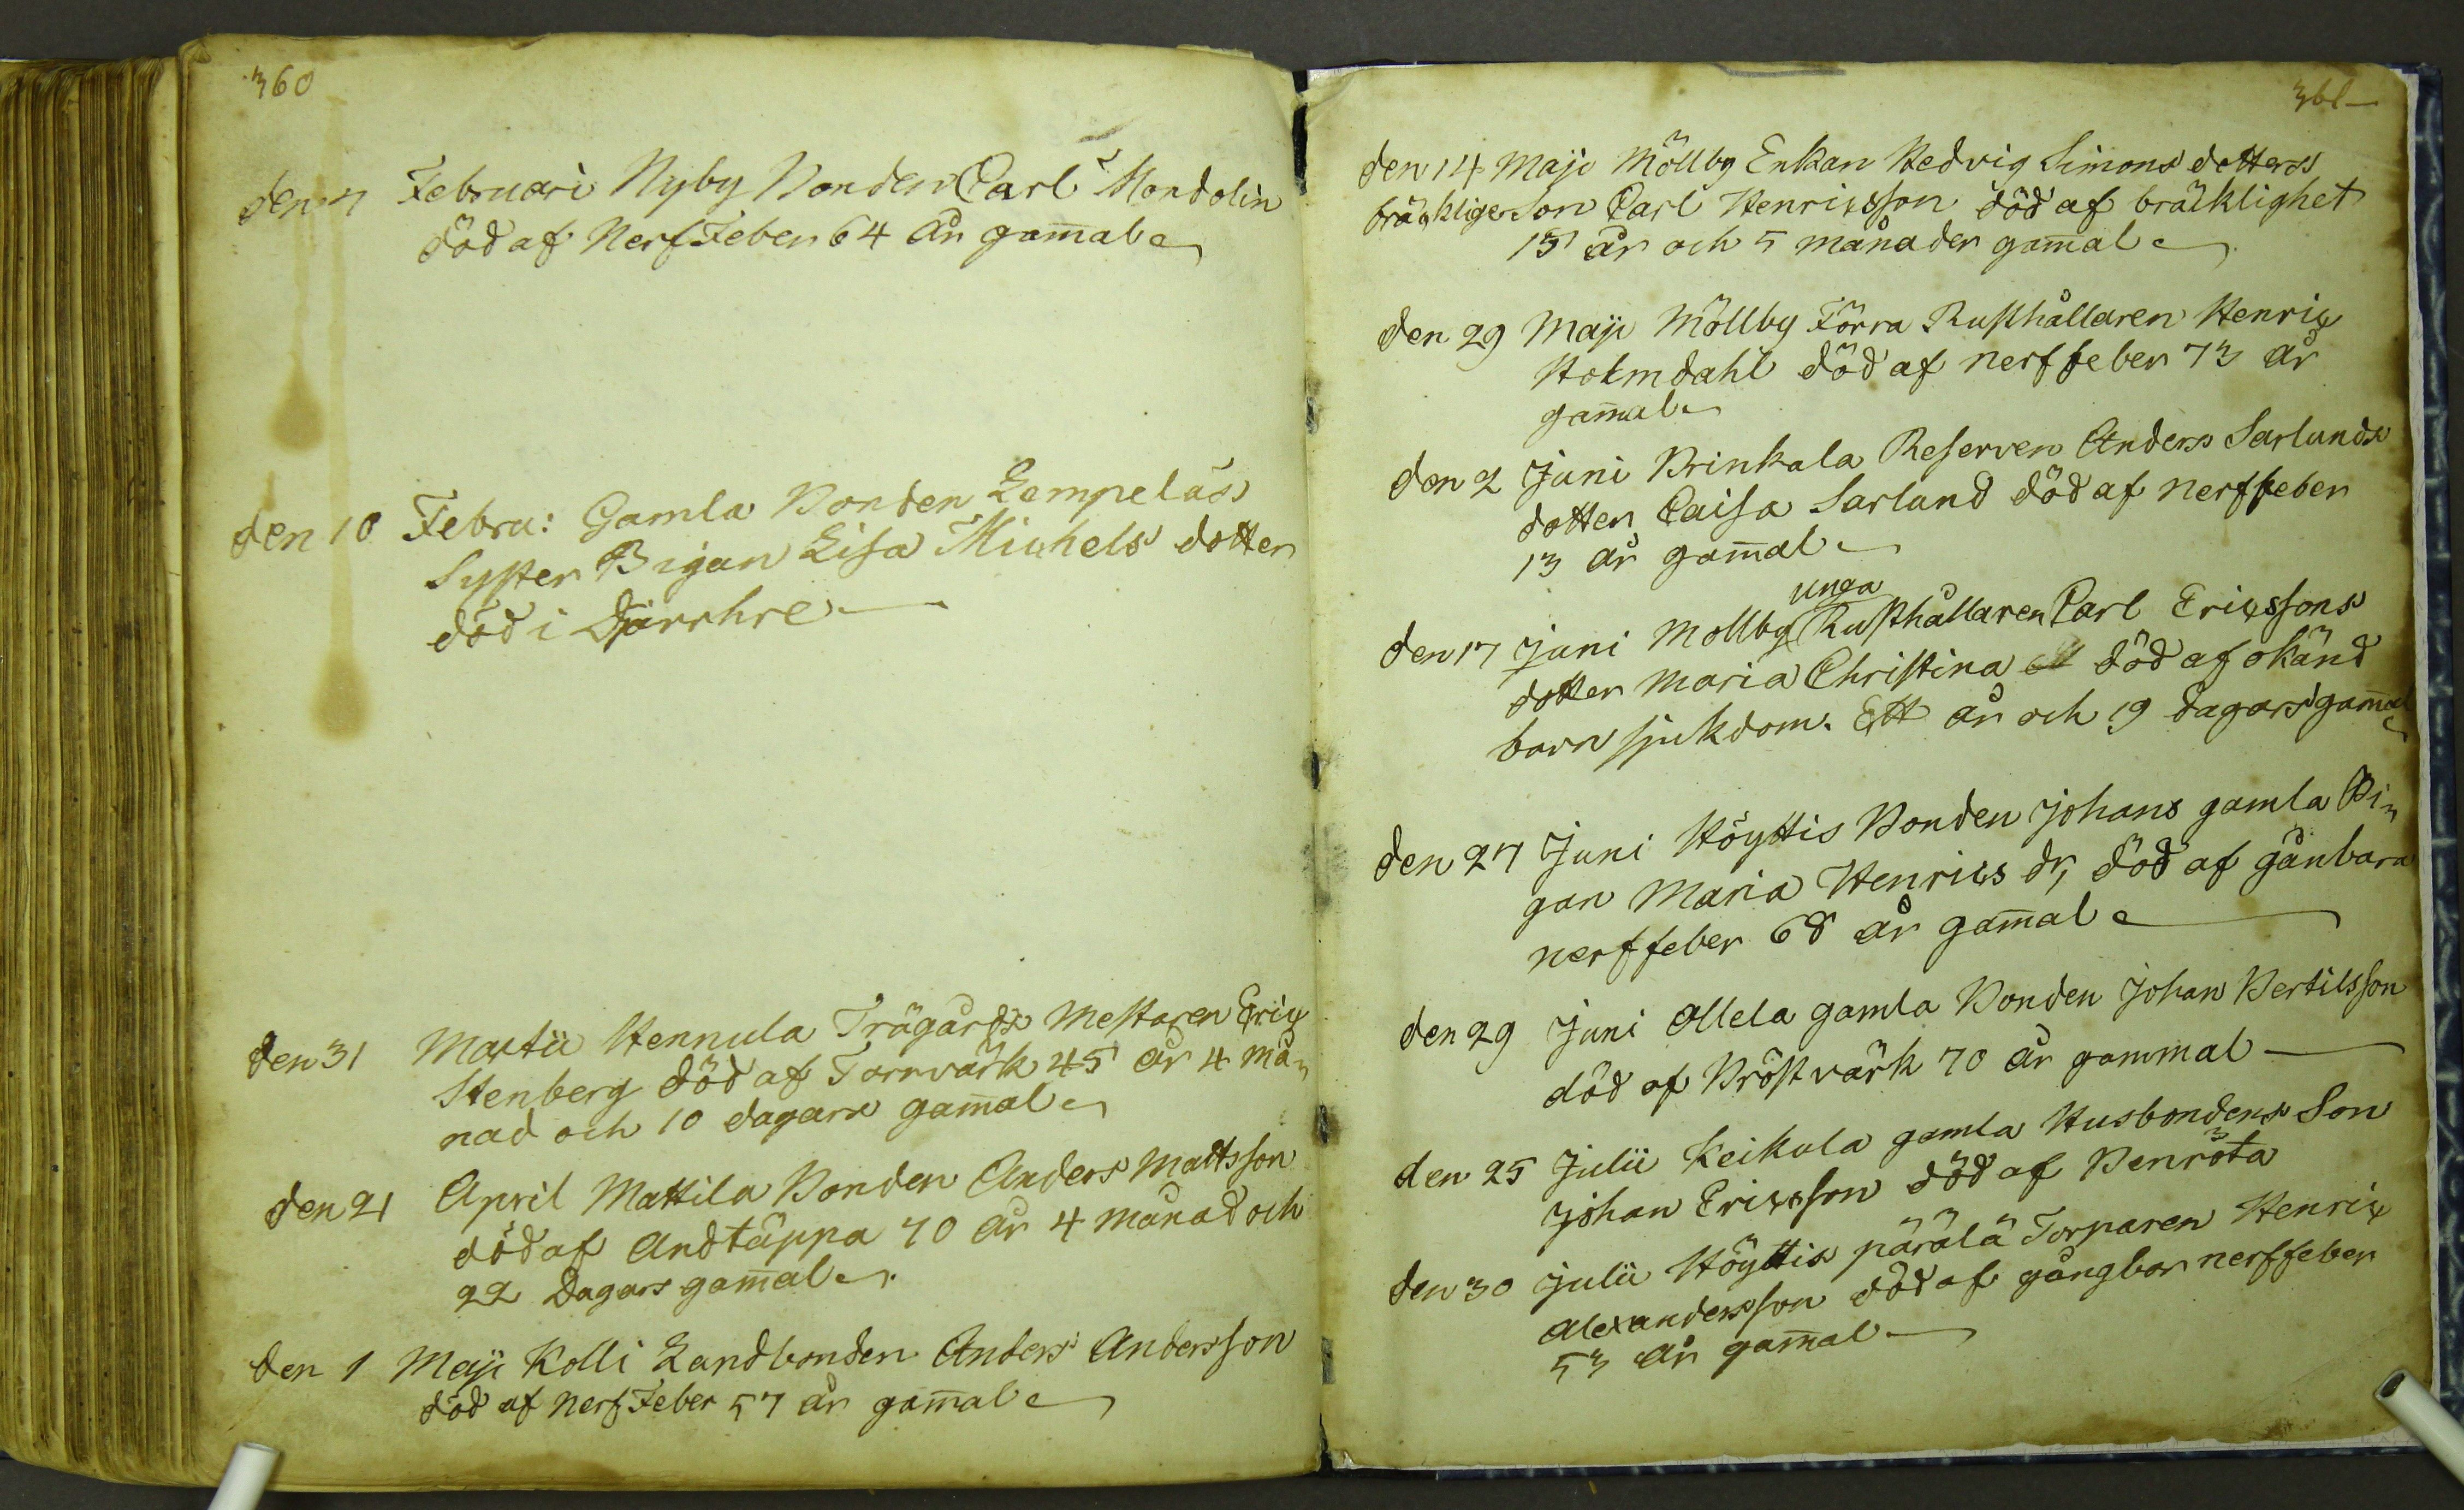 360
den 7 Februari Nyby Bonden Carl Mondolin
död af Nerf Feber 64 år gam̄al
den 10 Febru: Gamla Bonden Lempeläs
Syster Pigan Lisa Michels dotter
död i
den 31 Martii Hennula Trägårds Mestaren Eric
Stenberg död af Torrvärk 45 år 4 må„
nad och 10 dagars gam̄al
den 21 April Mattila Bonden Anders Mattsson
död af Andtäppa 70 år 4 månad och
22 Dagars gam̄al
den 1 Maji Kolli Landbonden Anders Andersson
död af Nerf Feber 57 år gam̄al
361
den 14 Maji Möllby Enkan Hedvig Simons dotters
bräcklige Son Carl Henricsson död af bräcklighet
15 år och 5 månader gam̄al
den 29 Maji Möllby Förra Rusthållaren Henric
Holmdahl död af nerffeber 73 år
gam̄al
den 2 Juni Brinkala Reserven Anders Sarlunds
dotter Caisa Sarlund död af nerffeber
13 år gam̄al
unga
den 17 Juni Möllby Rusthållaren Carl Ericssons
dotter Maria Christina död af okänd
barn sjukdom. Ett år och 19 dagars gam̄al
den 27 Juni Höyttis Bonden Johans gamla Pi„
gan Maria Henrics dr, död af gånbara
nerffeber 68 år gam̄al
den 29 Juni Allela gamla Bonden Johan Bertilsson
död af Bröst värk 70 år gammal
den 25 Julii Keikola gamla Husbondens Son
Johan Ericsson död af Benröta
den 30 Julii Höyttis pärälä Torparen Henric
Alexandersson död af gångbar nerffeber
53 år gam̄al